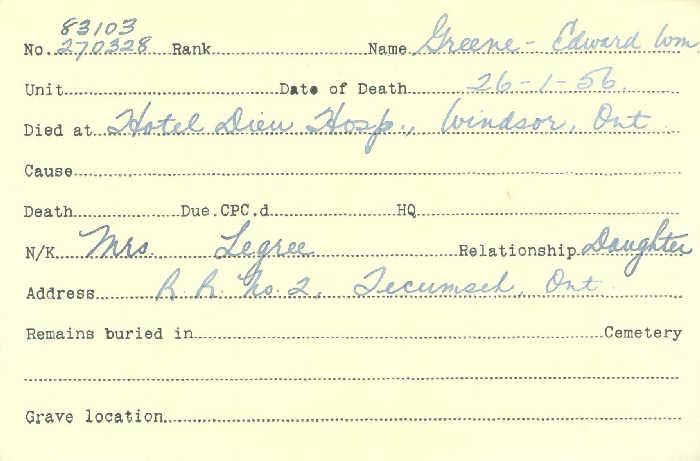 83103
No. 270328 Rank Name Greene - Edward Wm.
Unit Date of Death 26-1-56.
Died at Hotel Dieu Hosp., Windsor, Ont
Cause
Death Due.CPC.d HQ
N/K Mrs. Legree Relationship Daughter
Address R. R. No. 2, Tecumseh, Ont
Remains buried in Cemetery
Grave location